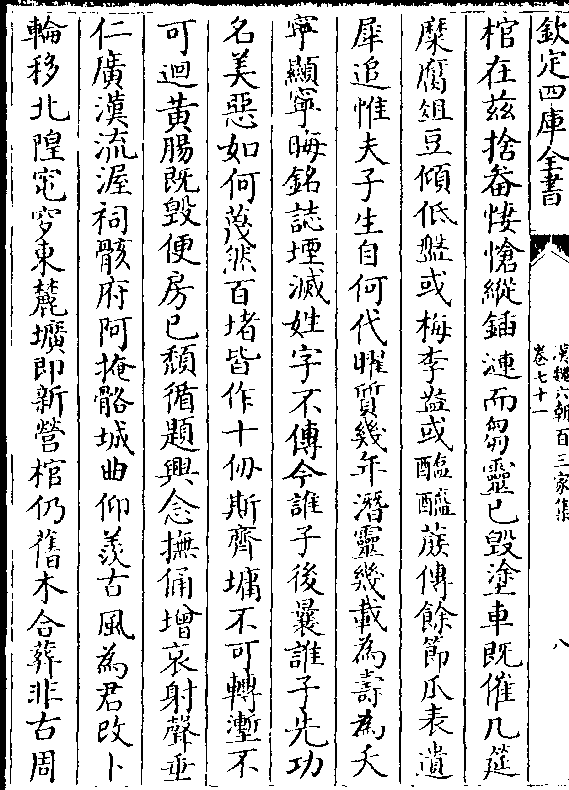 欽定四庫全書
漢魏六朝百三家集
卷七十一
八
棺在兹捨畚悽愴縱鍤漣而芻靈已毀塗車既僅几筵
糜腐俎豆傾低盤或梅李盎或醢醢蔗傳餘節瓜表遺
犀追惟夫子生自何代曜質幾年潛靈幾載為壽為夭
寧顯寧晦銘誌堙滅姓字不傳今誰子後曩誰子先功
名美惡如何蔑然百堵皆作十仞斯齊墉不可轉塹不
可迴黄腸既毁便房已頽循題興念撫俑增哀射聲垂
仁廣漢流渥祠骸府阿掩骼城曲仰羨古風為君改卜
輪移北隍窀穸東麓壙即新營棺仍舊木合葬非古周